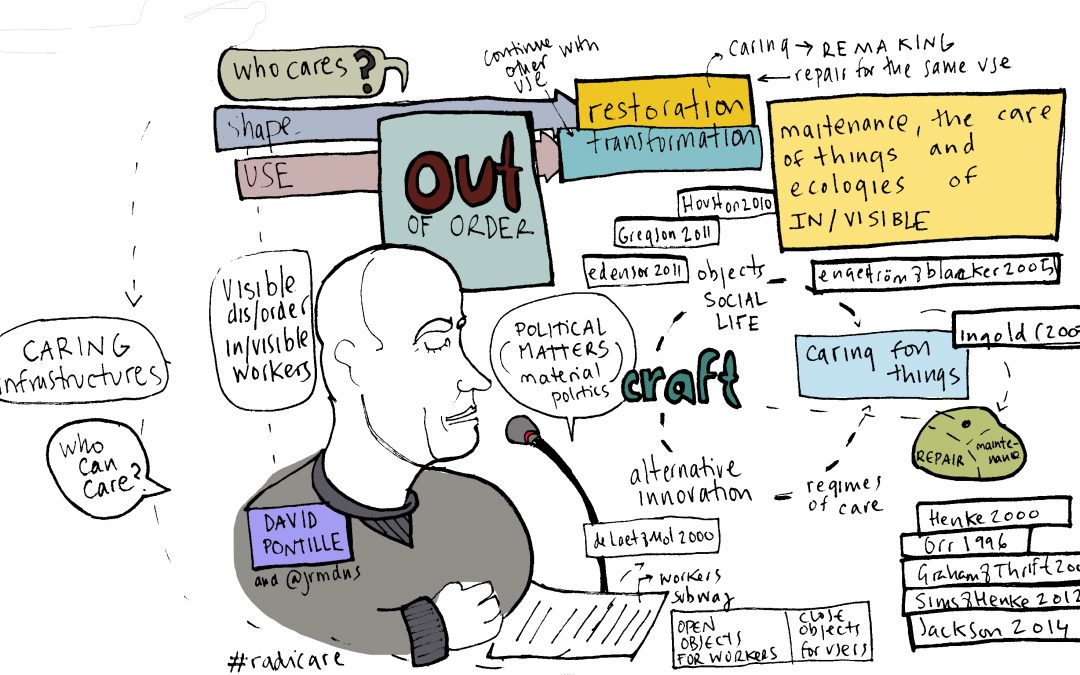 who cares?
continue with
other
use
caring → REMAKING
← repair for the same use
shape
USE
restoration
transformation
OUT
OF ORDER
maitenance, the care
of things and
ecologies of
IN/VISIBLE
Houston 2010
Gregson 2011
edensor 2011
objects
SOCIAL
LIFE
engeström & blacker 2005
Ingold (200
caring for
things
craft
alternative
innovation
regimes
of care
REPAIR
mainte-
nance
CARING
infrastructures
who
can
care?
Visible
dis/order
in/visible
workers
POLITICAL
MATTERS
material
politics
DAVID
PONTILLE
and @jrmdns
#radicare
de Laet & Mol 2000
workers
subway
OPEN
OBJECTS
FOR WORKERS
CLOSE
objects
for users
Henke 2000
Orr 1996
Graham & Thrift 200
Sims & Henke 2012
Jackson 2014